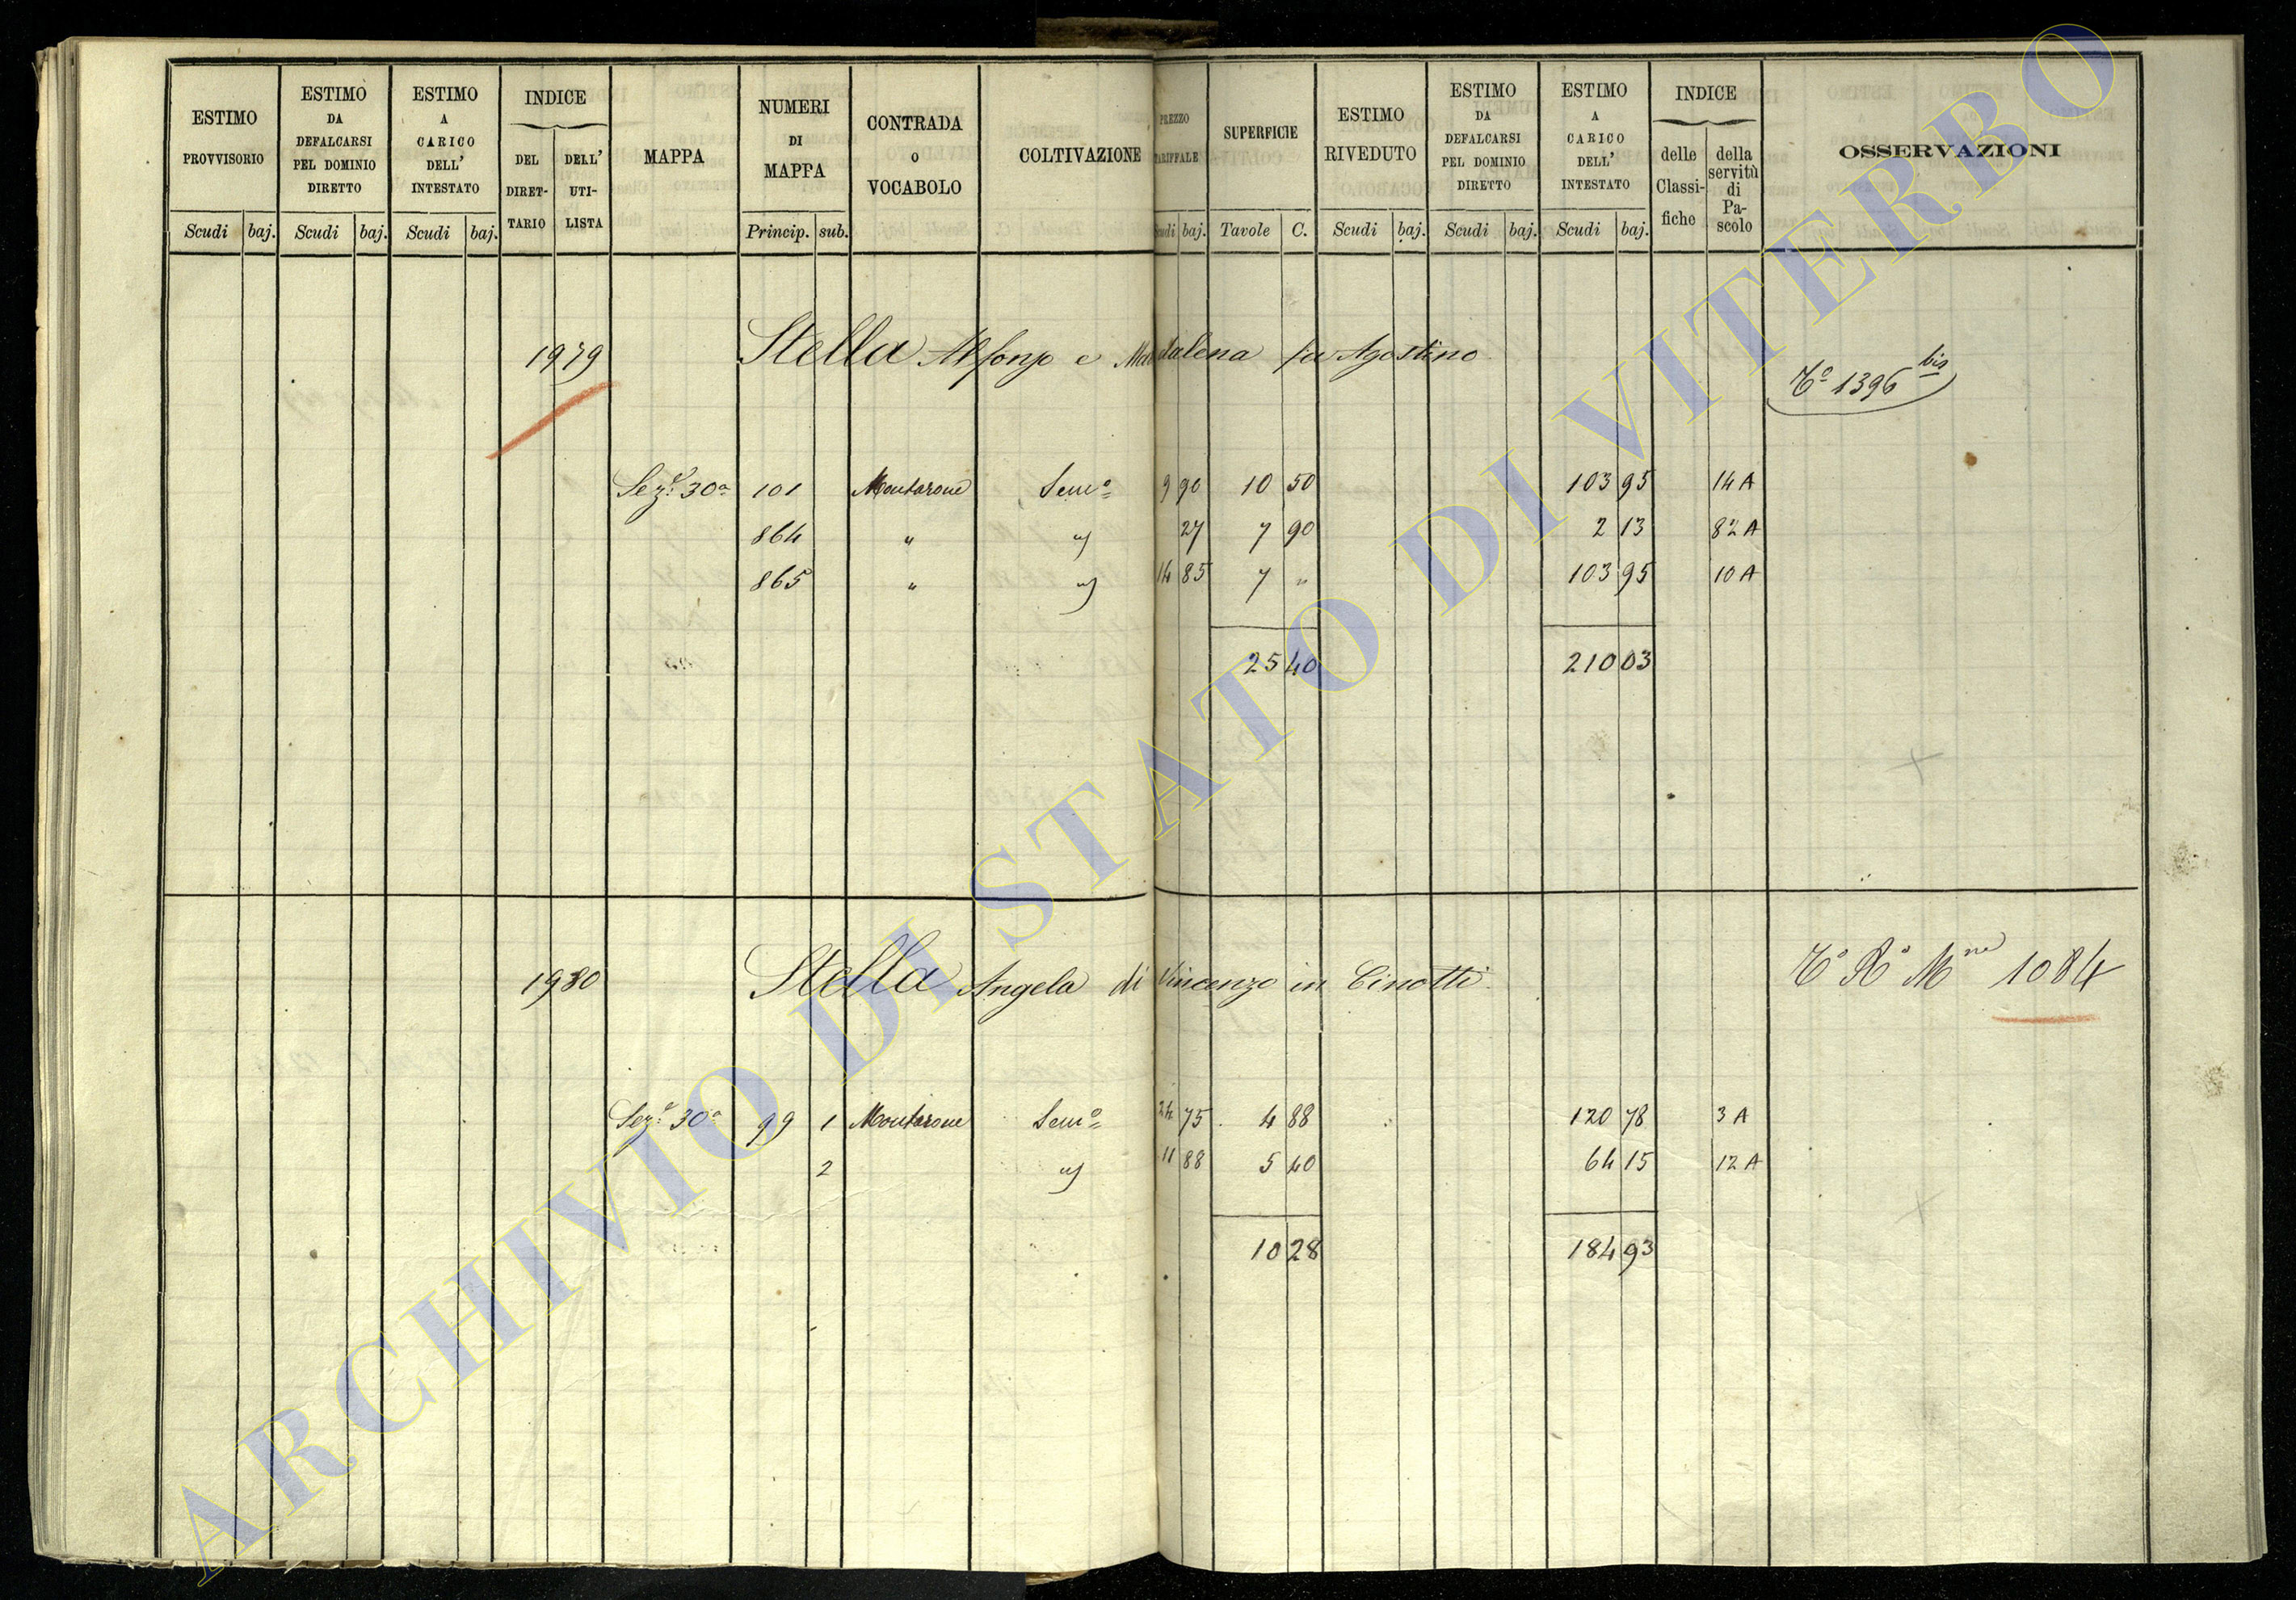 ESTIMO PROVVISORIO | ESTIMO DA DEFALCARSI PEL DOMINIO DIRETTO | ESTIMO A CARICO DELL' INTESTATO | INDICE | MAPPA | NUMERI DI MAPPA | CONTRADA O VOCABOLO | COLTIVAZIONE | PREZZO TARIFFALE | SUPERFICIE | ESTIMO RIVEDUTO | ESTIMO DA DEFALCARSI PEL DOMINIO DIRETTO | ESTIMO A CARICO DELL' INTESTATO | INDICE | OSSERVAZIONI
DEL DIRETTARIO | DELL' UTILISTA | delle Classifiche | della servitù di Pascolo
Scudi | baj. | Scudi | baj. | Scudi | baj. | Princip. | sub. | Scudi | baj. | Tavole | C. | Scudi | baj. | Scudi | baj. | Scudi | baj.
1979 Stella Alfonso e Maddalena fu Agostino
Tº 1396 bis
Sez.e 30a 101 Montarone Semº 9 90 10 50 103 95 14 A
864 " " 27 7 90 2 13 82 A
865 " " 14 85 7 " 103 95 10 A
25 40 210 03
1980 Stella Angela di Vincenzo in Cinotti
Tº Rº Mne 1084
Sez.e 30a 99 1 Montarone Semº 24 75 4 88 120 78 3 A
2 " 11 88 5 40 64 15 12 A
10 28 184 93
ARCHIVIO DI STATO DI VITERBO